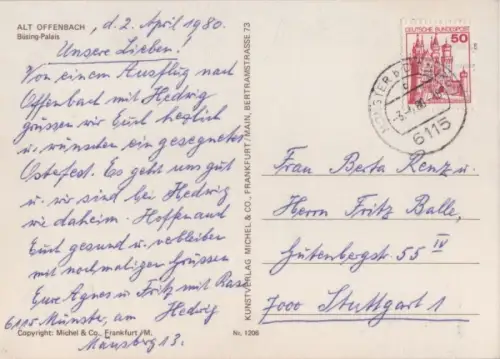 ALT OFFENBACH
Büsing-Palais
, d. 2. April 1980.
Unsere Lieben!
Von einem Ausflug nach
Offenbach mit Hedwig
grüssen wir Euch herzlich
u. wünschen ein gesegnetes
Osterfest. Es geht uns gut
u. wir sind bei Hedwig
wie daheim. Hoffen auch
Euch gesund u. verbleiben
mit nochmaligen Grüssen
Eure Agnes u. Fritz mit
Hedwig
6115 Münster, am
Mäusberg 13.
Copyright: Michel & Co., Frankfurt/M.
Nr. 1206
KUNSTVERLAG MICHEL & CO., FRANKFURT/MAIN, BERTRAMSTRASSE 73
DEUTSCHE BUNDESPOST
50
MÜNSTER b
6115
Frau Berta Renz u.
Herrn Fritz Balle,
Gutenbergstr. 55 IV
7000 Stuttgart 1